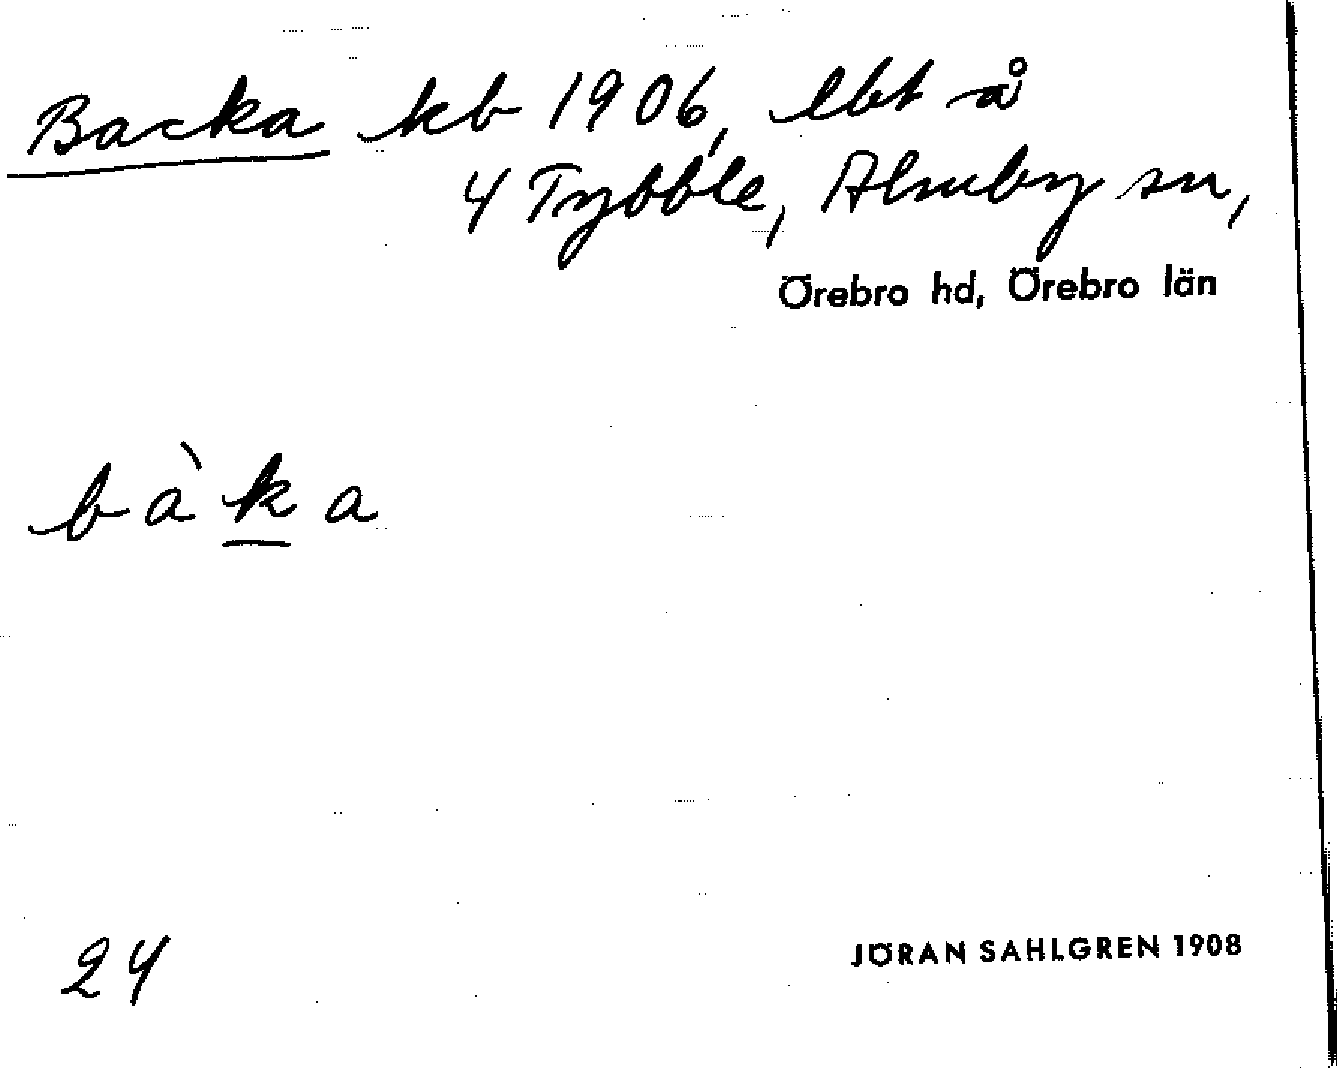 Backa kb 1906, lbt å
4 Tybble, Almby sn,
Örebro hd, Örebro län
bàka
24
JÖRAN SAHLGREN 1908